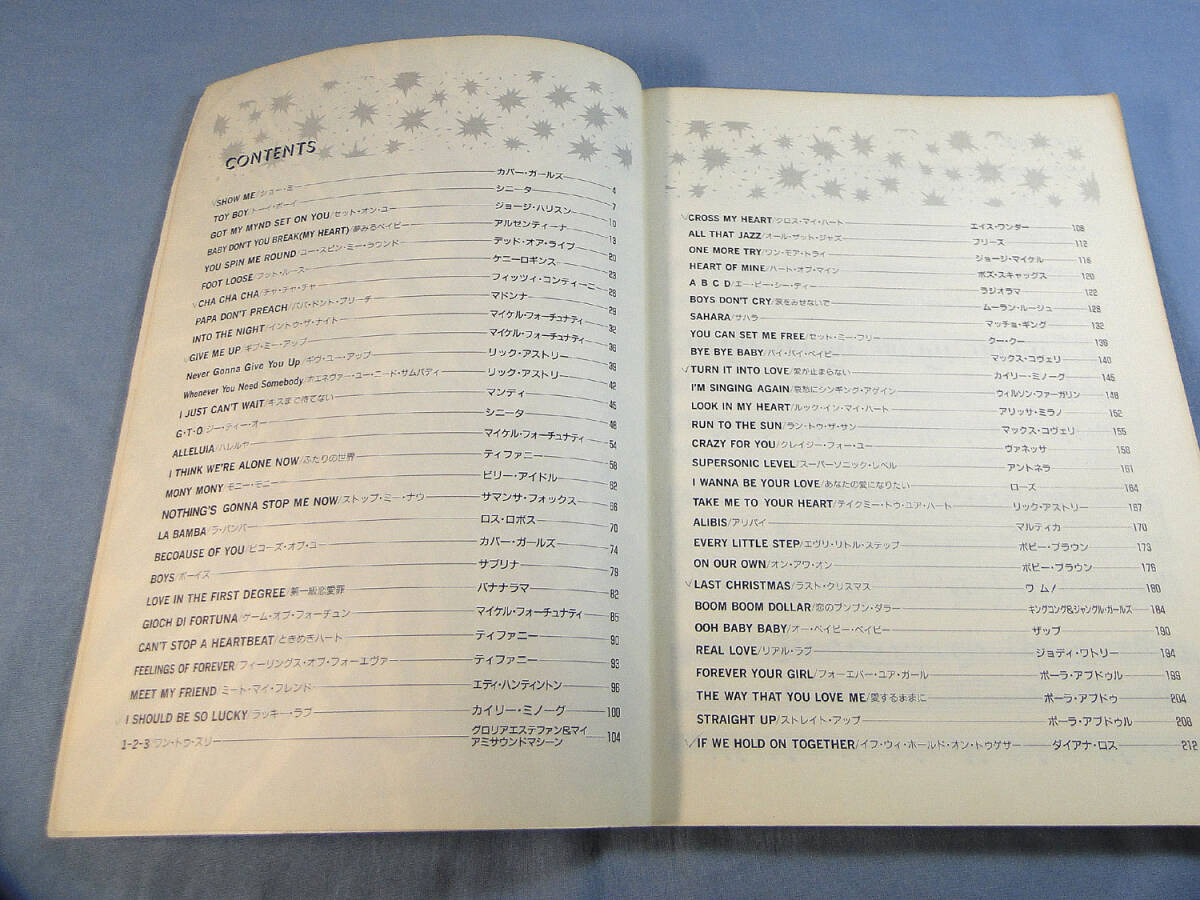 CONTENTS
SHOW ME/ショー・ミー カバー・ガールズ 4
TOY BOY/トーイ・ボーイ シニータ 7
GOT MY MYND SET ON YOU/セット・オン・ユー ジョージ・ハリスン 10
BABY DON'T YOU BREAK(MY HEART)/夢みるベイビー アルセンティーナ
YOU SPIN ME ROUND/ユー・スピン・ミー・ラウンド デッド・オア・ライブ 20
FOOT LOOSE/フット・ルース ケニーロギンス 23
CHA CHA CHA/チャ・チャ・チャ フィッツィ・コンティーニ 26
PAPA DON'T PREACH/パパ・ドント・プリーチ マドンナ 29
INTO THE NIGHT/イントゥ・ザ・ナイト マイケル・フォーチュナティ 32
GIVE ME UP/ギブ・ミー・アップ マイケル・フォーチュナティ 36
Never Gonna Give You Up/ギヴ・ユー・アップ リック・アストリー 39
Whenever You Need Somebody/ホエネヴァー・ユー・ニード・サムバディ リック・アストリー 42
I JUST CAN'T WAIT/キスまで待てない マンディ 45
G・T・O/ジー・ティー・オー シニータ 48
ALLELUIA/ハレルヤ マイケル・フォーチュナティ 54
I THINK WE'RE ALONE NOW/ふたりの世界 ティファニー 58
MONY MONY/モニー・モニー ビリー・アイドル 62
NOTHING'S GONNA STOP ME NOW/ストップ・ミー・ナウ サマンサ・フォックス 66
LA BAMBA/ラ・バンバ ロス・ロボス 70
BECOAUSE OF YOU/ビコーズ・オブ・ユー カバー・ガールズ 74
BOYS/ボーイズ サブリナ 79
LOVE IN THE FIRST DEGREE/第一級恋愛罪 バナナラマ 82
GIOCH DI FORTUNA/ゲーム・オブ・フォーチュン マイケル・フォーチュナティ 85
CAN'T STOP A HEARTBEAT/ときめきハート ティファニー 90
FEELINGS OF FOREVER/フィーリングス・オブ・フォーエヴァー ティファニー 93
MEET MY FRIEND/ミート・マイ・フレンド エディ・ハンティントン 96
I SHOULD BE SO LUCKY/ラッキー・ラブ カイリー・ミノーグ 100
1-2-3/ワン・トゥ・スリー グロリアエステファン&マイ
アミサウンドマシーン 104
CROSS MY HEART/クロス・マイ・ハート エイス・ワンダー 108
ALL THAT JAZZ/オール・ザット・ジャズ ブリーズ 112
ONE MORE TRY/ワン・モア・トライ ジョージ・マイケル 116
HEART OF MINE/ハート・オブ・マイン ボズ・スキャッグス 120
A B C D/エー・ビー・シー・ディー ラジオラマ 122
BOYS DON'T CRY/涙をみせないで ムーラン・ルージュ 128
SAHARA/サハラ マッチョ・ギング 132
YOU CAN SET ME FREE/セット・ミー・フリー クー・クー 136
BYE BYE BABY/バイ・バイ・ベイビー マックス・コヴェリ 140
TURN IT INTO LOVE/愛が止まらない カイリー・ミノーグ 145
I'M SINGING AGAIN/哀愁にシンギング・アゲイン ウィルソン・ファーガリン 148
LOOK IN MY HEART/ルック・イン・マイ・ハート アリッサ・ミラノ 152
RUN TO THE SUN/ラン・トゥ・ザ・サン マックス・コヴェリ 155
CRAZY FOR YOU/クレイジー・フォー・ユー ヴァネッサ 158
SUPERSONIC LEVEL/スーパーソニック・レベル アントネラ 161
I WANNA BE YOUR LOVE/あなたの愛になりたい ローズ 164
TAKE ME TO YOUR HEART/テイクミー・トゥ・ユア・ハート リック・アストリー 167
ALIBIS/アリバイ マルティカ 170
EVERY LITTLE STEP/エヴリ・リトル・ステップ ボビー・ブラウン 173
ON OUR OWN/オン・アワ・オン ボビー・ブラウン 176
LAST CHRISTMAS/ラスト・クリスマス ワム! 180
BOOM BOOM DOLLAR/恋のブンブン・ダラー キングコング&ジャングル・ガールズ 184
OOH BABY BABY/オー・ベイビー・ベイビー ザップ 190
REAL LOVE/リアル・ラブ ジョディ・ワトリー 194
FOREVER YOUR GIRL/フォーエバー・ユア・ガール ポーラ・アブドゥル 199
THE WAY THAT YOU LOVE ME/愛するままに ポーラ・アブドゥ 204
STRAIGHT UP/ストレイト・アップ ポーラ・アブドゥル 208
IF WE HOLD ON TOGETHER/イフ・ウィ・ホールド・オン・トゥゲザー ダイアナ・ロス 212